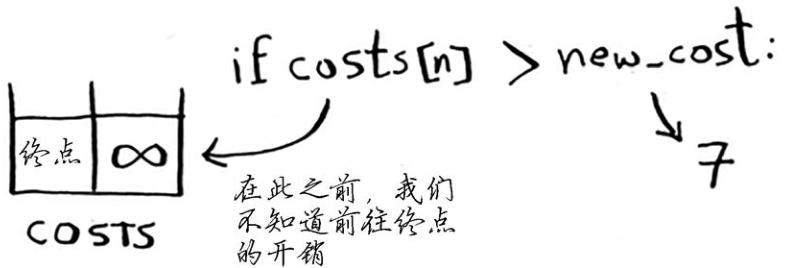 if costs[n] > new_cost:
7
终点 ∞
COSTS
在此之前，我们
不知道前往终点
的开销